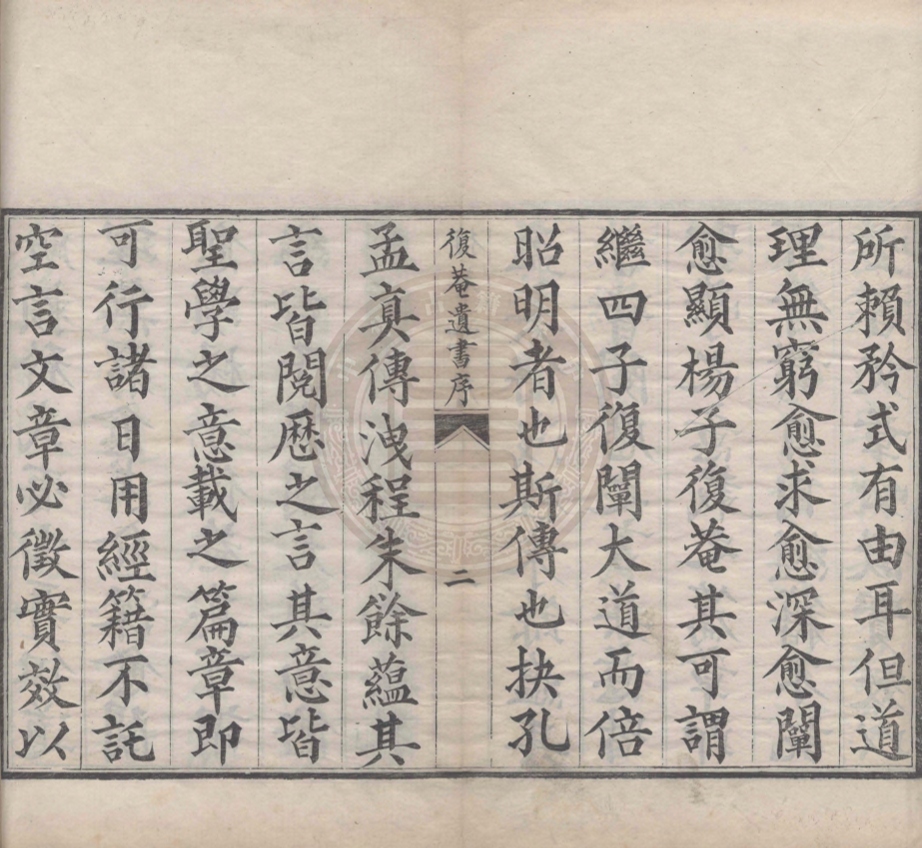 所賴矜式有由耳但道
理無窮愈求愈深愈闡
愈顯楊子復菴其可謂
繼四子復闡大道而倍
昭明者也斯傳也抉孔
復菴遺書序
二
孟真傳洩程朱餘蘊其
言皆閱歷之言其意皆
聖學之意載之篇章即
可行諸日用經籍不託
空言文章必徵實效以